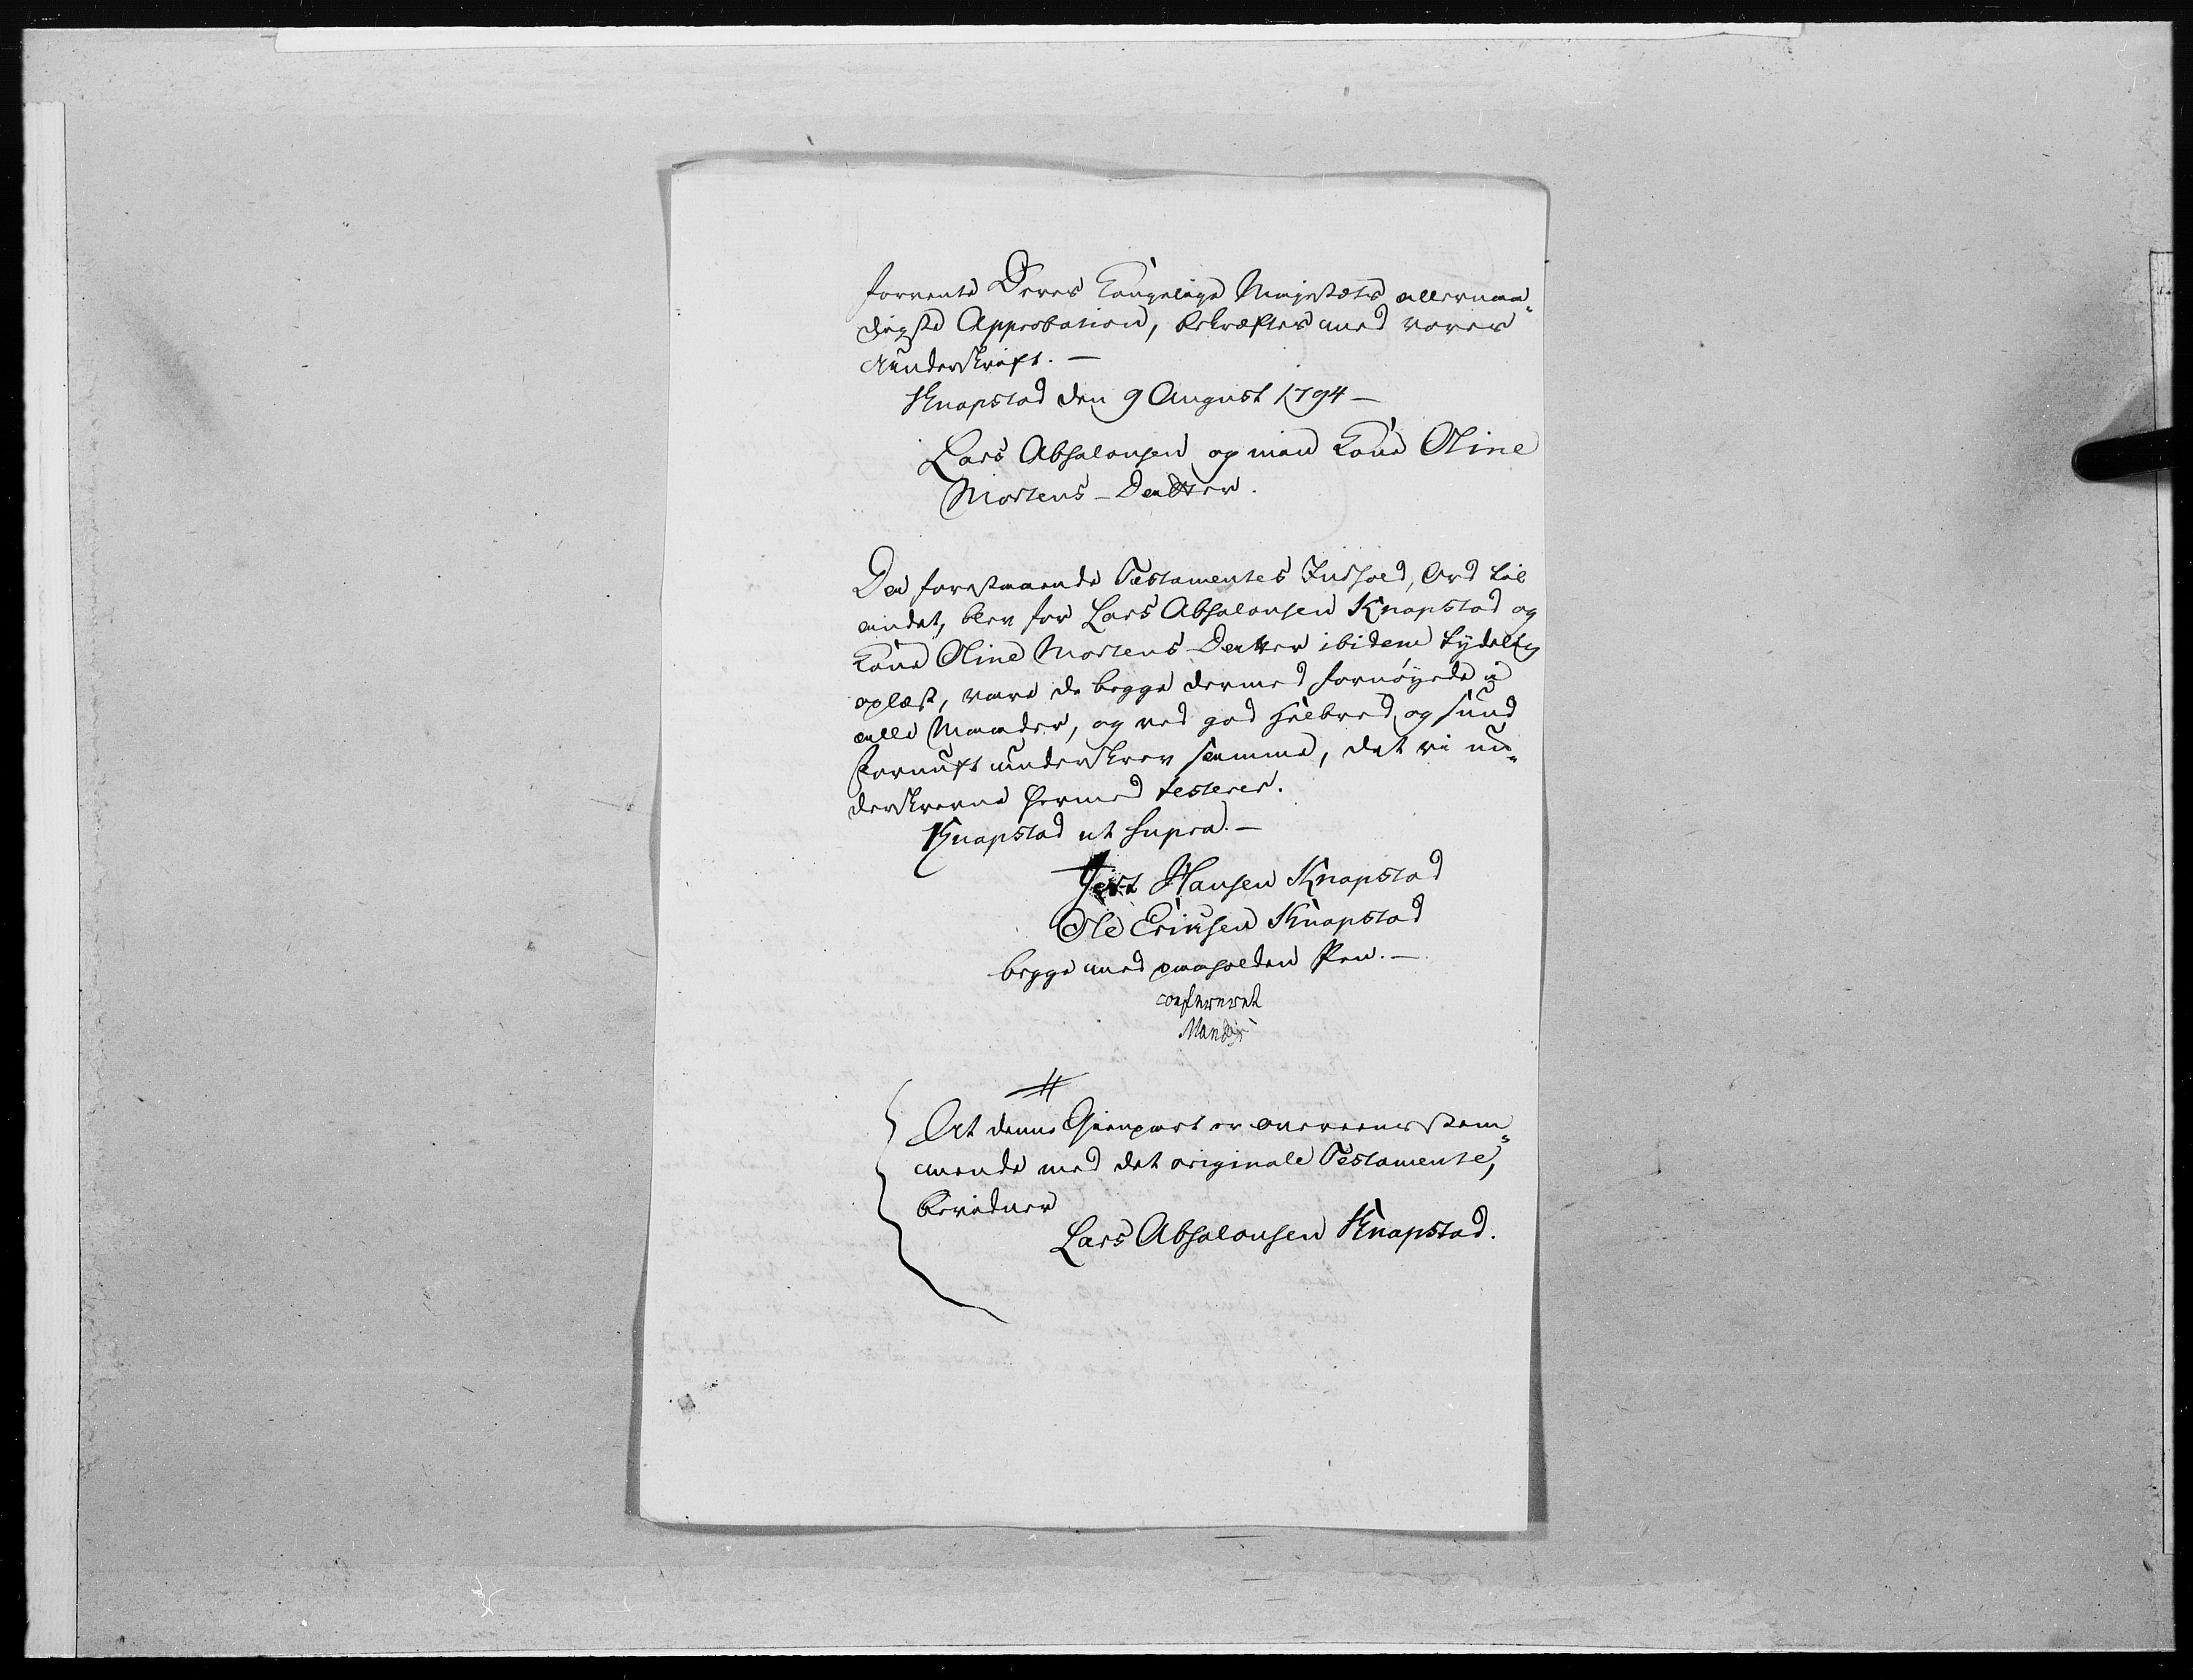 forvente Deres Kongelige Majestæts allernaa-
digste Approbation, bekræfter med vores
Underskrift. —
Knapstad den 9 August 1794 —
Lars Absalonsen og min Kone Oline
Mortens-Datter.
Da forestaaende Testamentes Indhold, Ord til
andet, blev for Lars Absalonsen Knapstad og
Kone Oline Mortens-Datter ibidem tydelig
oplæst, vare de begge dermed fornøyede i
alle Maader, og ved god Helbred og sund
Fornuft underskrev samme, det vi un-
derskrevne hermed testerer.
Knapstad ut supra. —
Hansen Knapstad
Ole Eriksen Knapstad
begge med paaholden Pen. —
confereret
At denne Gienpart er overeensstem-
mende med det originale Testamente,
bevidner
Lars Absalonsen Knapstad.